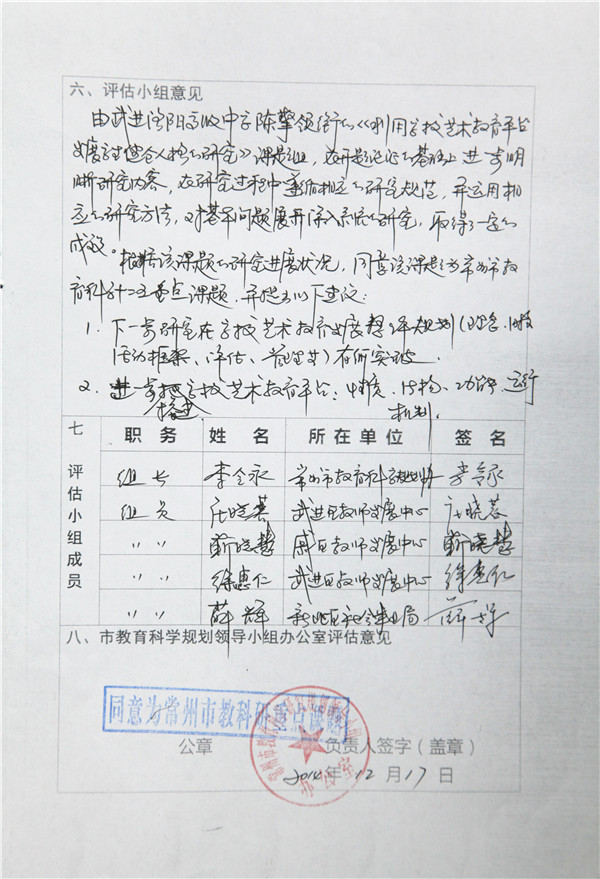 六、评估小组意见
由武进洛阳高级中学陈擎领衔的《利用学校艺术教育平台
发展学生健全人格的研究》课题组，在开题论证的基础上进一步明
晰研究内容，在研究过程中遵循相应的研究规范，并运用相
应的研究方法，对基本问题展开深入系统的研究，取得了一定的
成效。
根据该课题的研究进展状况，同意该课题为常州市教
育科学十二五重点课题，并提出以下建议：
1. 下一步研究在学校艺术教育发展整体规划
活动框架、评估、管理等)有所突破.
2. 进一步把学校艺术教育平台：功能、运行
搭建 机制.
七 评估小组成员
职务 姓名 所在单位 签名
组长 李全永 常州市教育科学规划办 李全永
组员 庄晓燕 武进区教师发展中心 庄晓燕
〃 〃 靳晓慧 戚区教师发展中心 靳晓慧
〃 〃 徐惠仁 武进区教师发展中心 徐惠仁
〃 〃 薛辉 新北区社会事业局 薛辉
八、市教育科学规划领导小组办公室评估意见
同意为常州市教科研重点课题
公章 负责人签字（盖章）
办公室
2014年12月17日